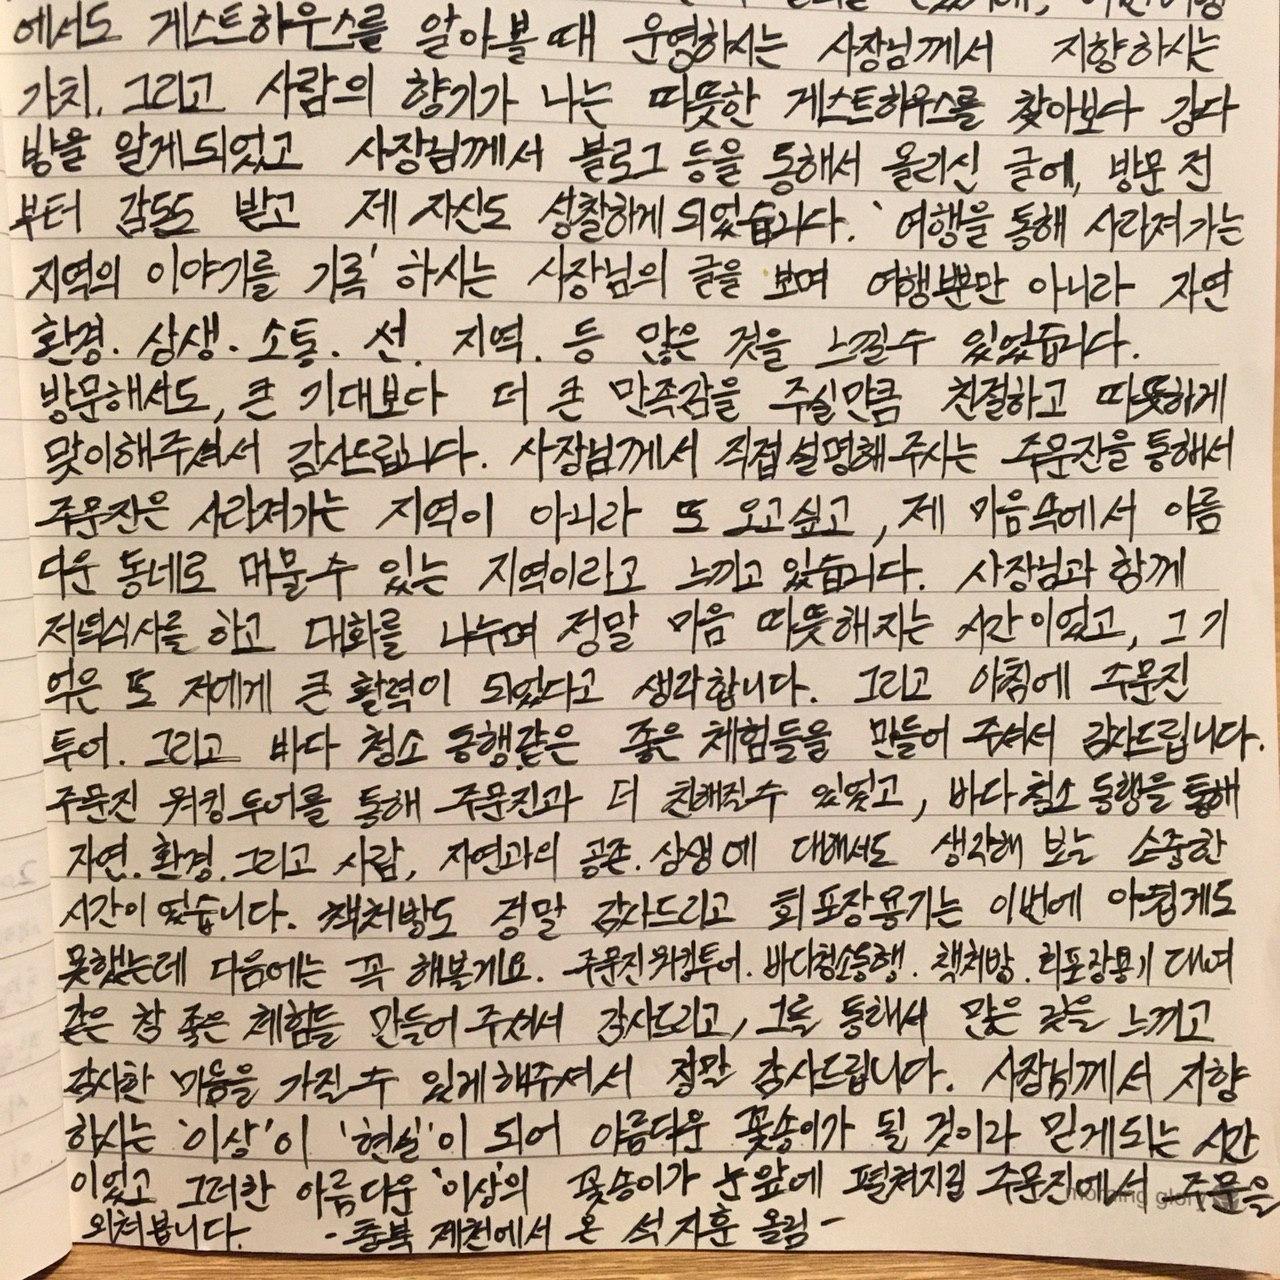 에서도 게스트하우스를 알아볼 때 운영하시는 사장님께서 지향하시는
가치. 그리고 사람의 향기가 나는 따뜻한 게스트하우스를 찾아보다 강다
방을 알게되었고 사장님께서 블로그 등을 통해서 올리신 글에, 방문 전
부터 감동도 받고 제 자신도 성찰하게 되었습니다. '여행을 통해 사라져가는
지역의 이야기를 기록' 하시는 사장님의 글을 보며 여행뿐만 아니라 자연
환경. 상생. 소통. 선. 지역. 등 많은 것을 느낄수 있었습니다.
방문해서도, 큰 기대보다 더 큰 만족감을 주실만큼 친절하고 따뜻하게
맞이해주셔서 감사드립니다. 사장님께서 직접 설명해주시는 주문진을 통해서
주문진은 사라져가는 지역이 아니라 또 오고싶고, 제 마음속에서 아름
다운 동네로 머물수 있는 지역이라고 느끼고 있습니다. 사장님과 함께
저녁식사를 하고 대화를 나누며 정말 마음 따뜻해지는 시간이었고, 그 기
억은 또 저에게 큰 활력이 되었다고 생각합니다. 그리고 아침에 주문진
투어. 그리고 바다 청소 동행같은 좋은 체험들을 만들어 주셔서 감사드립니다.
주문진 워킹투어를 통해 주문진과 더 친해질수 있었고, 바다청소 동행을 통해
자연. 환경. 그리고 사람, 자연과의 공존. 상생에 대해서도 생각해 보는 소중한
시간이었습니다. 책처방도 정말 감사드리고 회 포장용기는 이번에 아쉽게도
못했는데 다음에는 꼭 해볼게요. 주문진워킹투어. 바다청소동행. 책처방. 회포장용기 대여
같은 참 좋은 체험들 만들어 주셔서 감사드리고, 그를 통해서 많은 것을 느끼고
감사한 마음을 가질 수 있게해주셔서 정말 감사드립니다. 사장님께서 지향
하시는 '이상'이 '현실'이 되어 아름다운 꽃송이가 될 것이라 믿게되는 시간
이었고 그러한 아름다운 '이상'의 꽃송이가 눈앞에 펼쳐지길 주문진에서 주문을
외쳐봅니다. - 충북 제천에서 온 석지훈 올림 -
morning glory